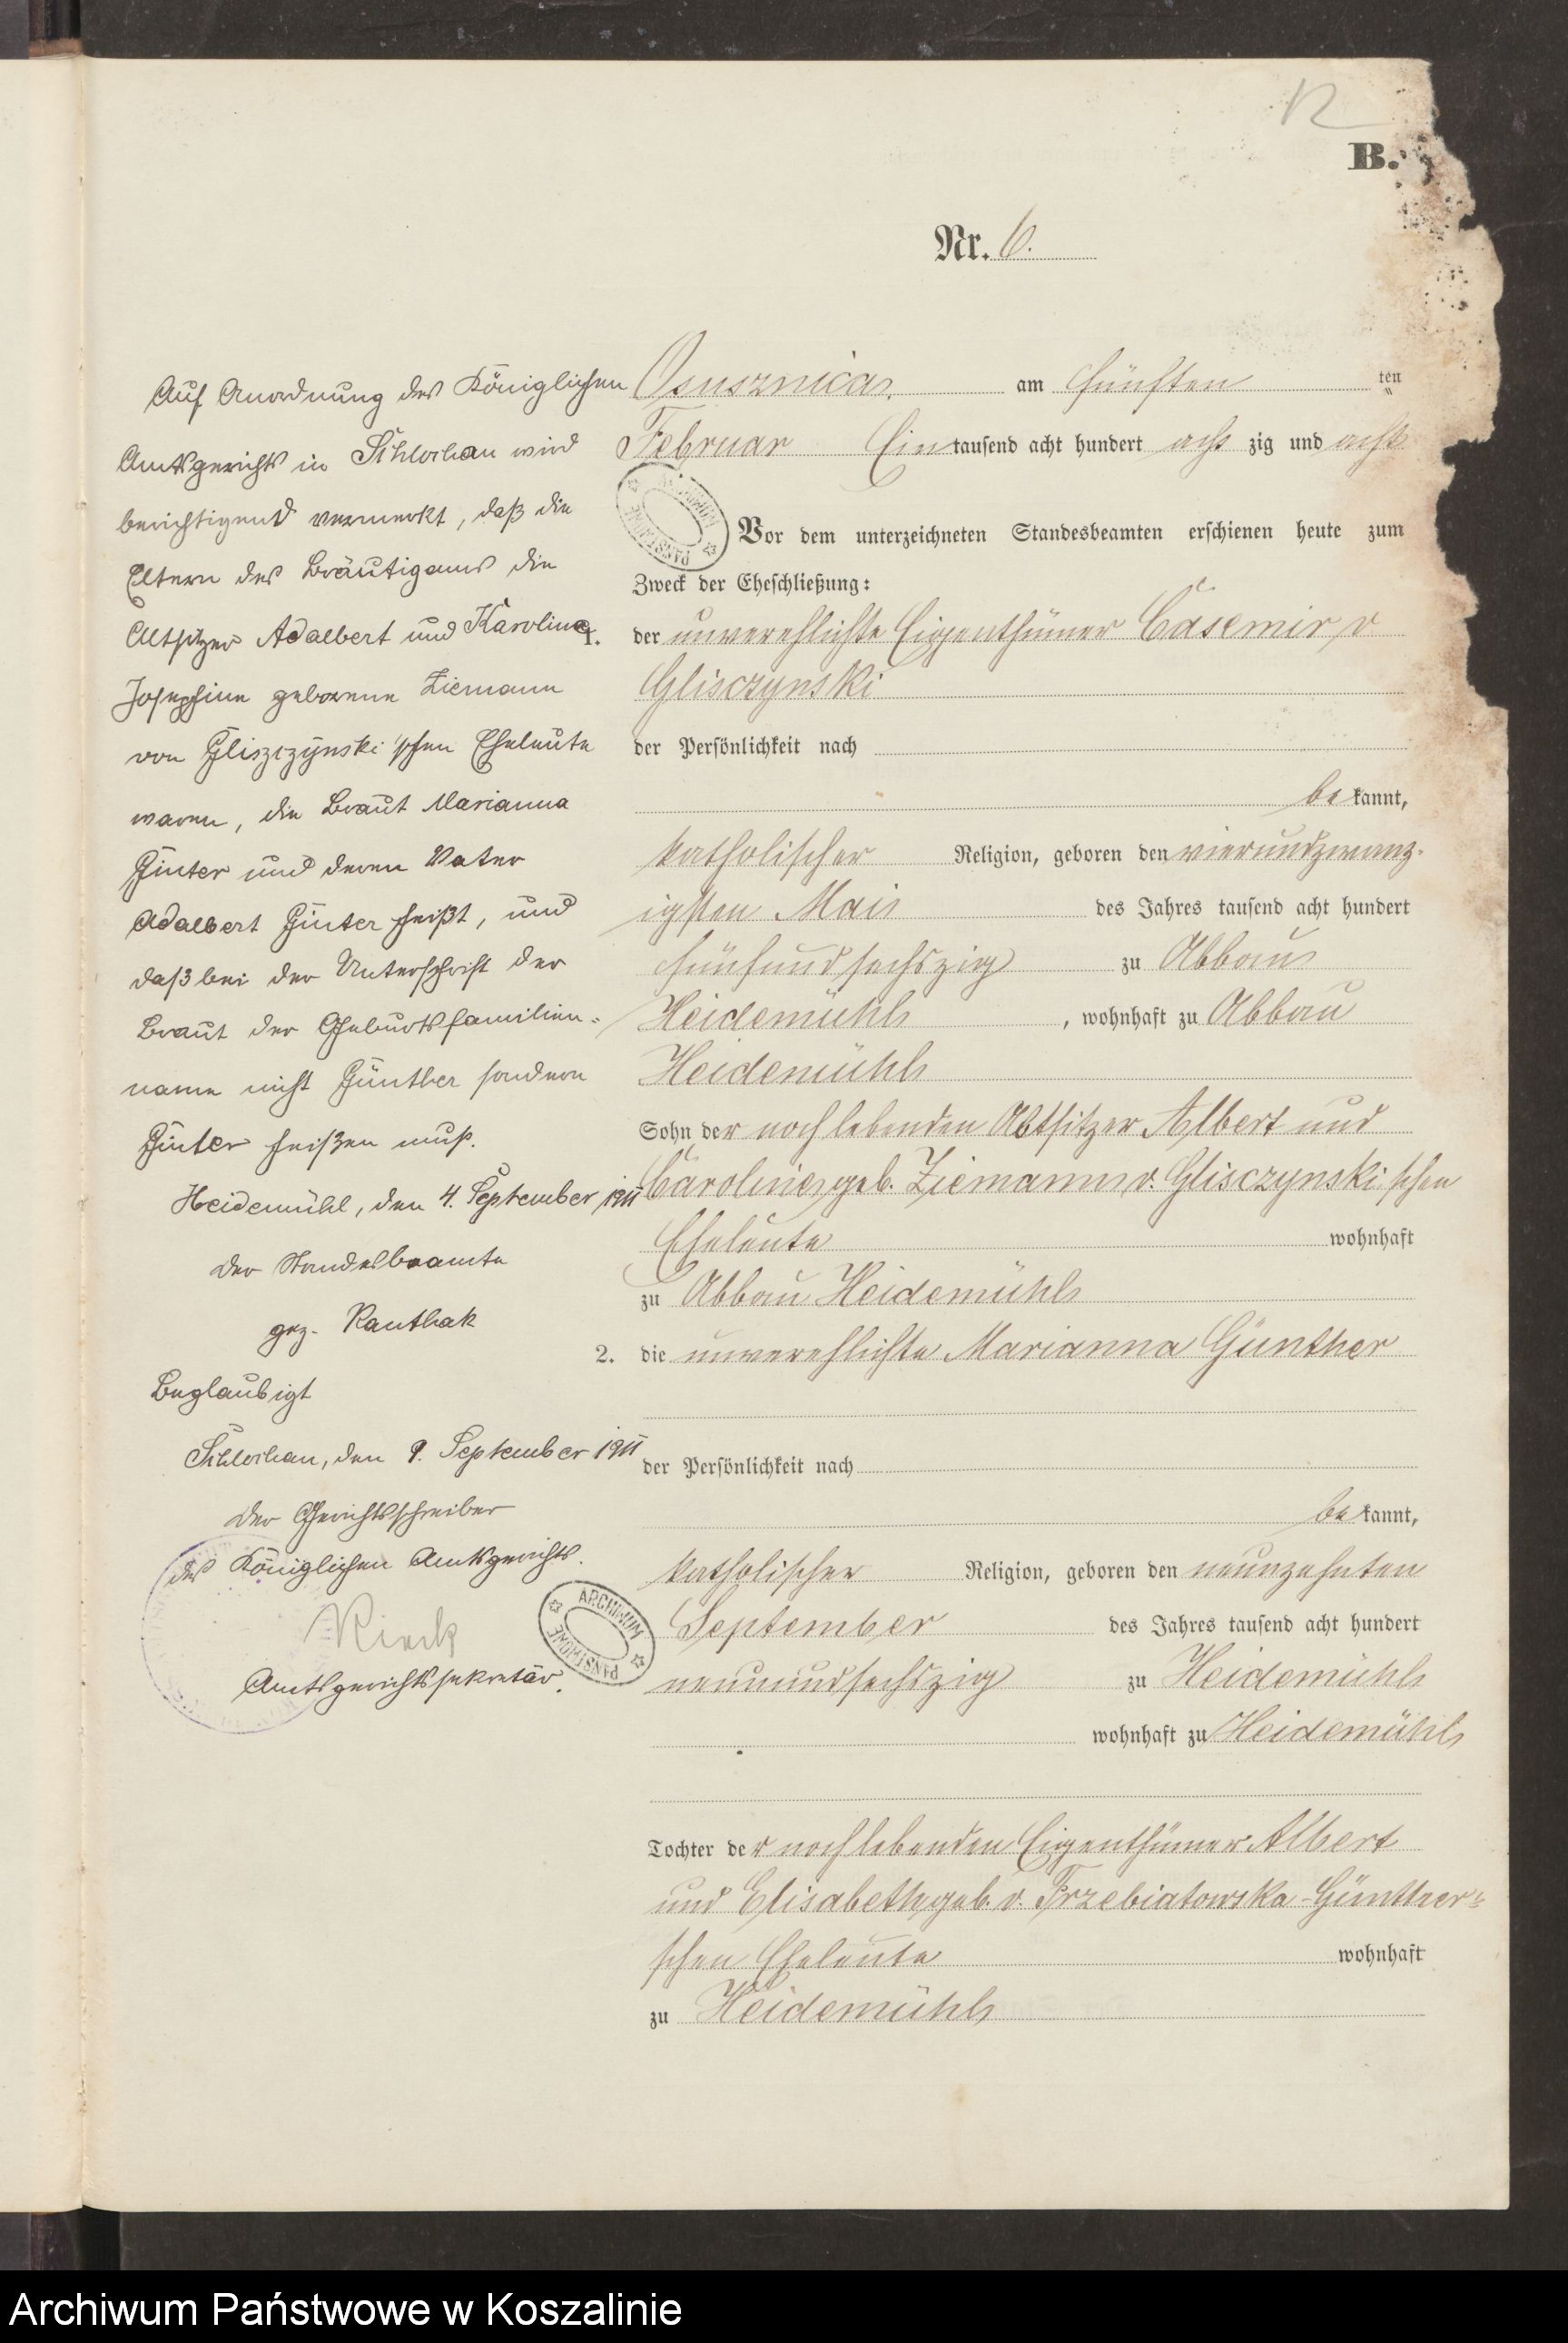 12
B.
Nr. 6.
Osusznica, am fünften ten
Februar Eintausend acht hundert achtzig und acht
Vor dem unterzeichneten Standesbeamten erschienen heute zum
Zweck der Eheschließung:
1. der unverehlichte Eigenthümer Casemir v
Glisczynski
der Persönlichkeit nach
be kannt,
katholischer Religion, geboren den vierundzwanz-
igsten Mai des Jahres tausend acht hundert
fünfundsechszig zu Abbau
Heidemühl, wohnhaft zu Abbau
Heidemühl
Sohn der noch lebenden Altsitzer Albert und
Caroline geb. Ziemann v. Glisczynski'schen
Eheleute wohnhaft
zu Abbau Heidemühl
2. die unverehlichte Marianna Günther
der Persönlichkeit nach
be kannt,
katholischer Religion, geboren den neunzehnten
September des Jahres tausend acht hundert
neunundsechszig zu Heidemühl
wohnhaft zu Heidemühl
Tochter der noch lebenden Eigenthümer Albert
und Elisabeth geb. v. Trzebiatowska-Günther-
schen Eheleute wohnhaft
zu Heidemühl
Auf Anordnung des Königlichen
Amtsgerichts in Schlochau wird
berichtigend vermerkt, daß die
Eltern des Bräutigams die
Altsitzer Adalbert und Karoline
Josephine geborene Ziemann
von Gliszczynski'schen Eheleute
waren, die Braut Marianna
Ginter und deren Vater
Adalbert Ginter heißt, und
daß bei der Unterschrift der
Braut der Geburtsfamilien-
name nicht Günther sondern
Ginter heißen muß.
Heidemühl, den 4. September 1911
Der Standesbeamte
gez. Kauthak
Beglaubigt
Schlochau, den 9. September 1911
Der Gerichtsschreiber
des Königlichen Amtsgerichts.
Amtsgerichtssekretär.
ARCHIWUM PAŃSTWOWE
Archiwum Państwowe w Koszalinie